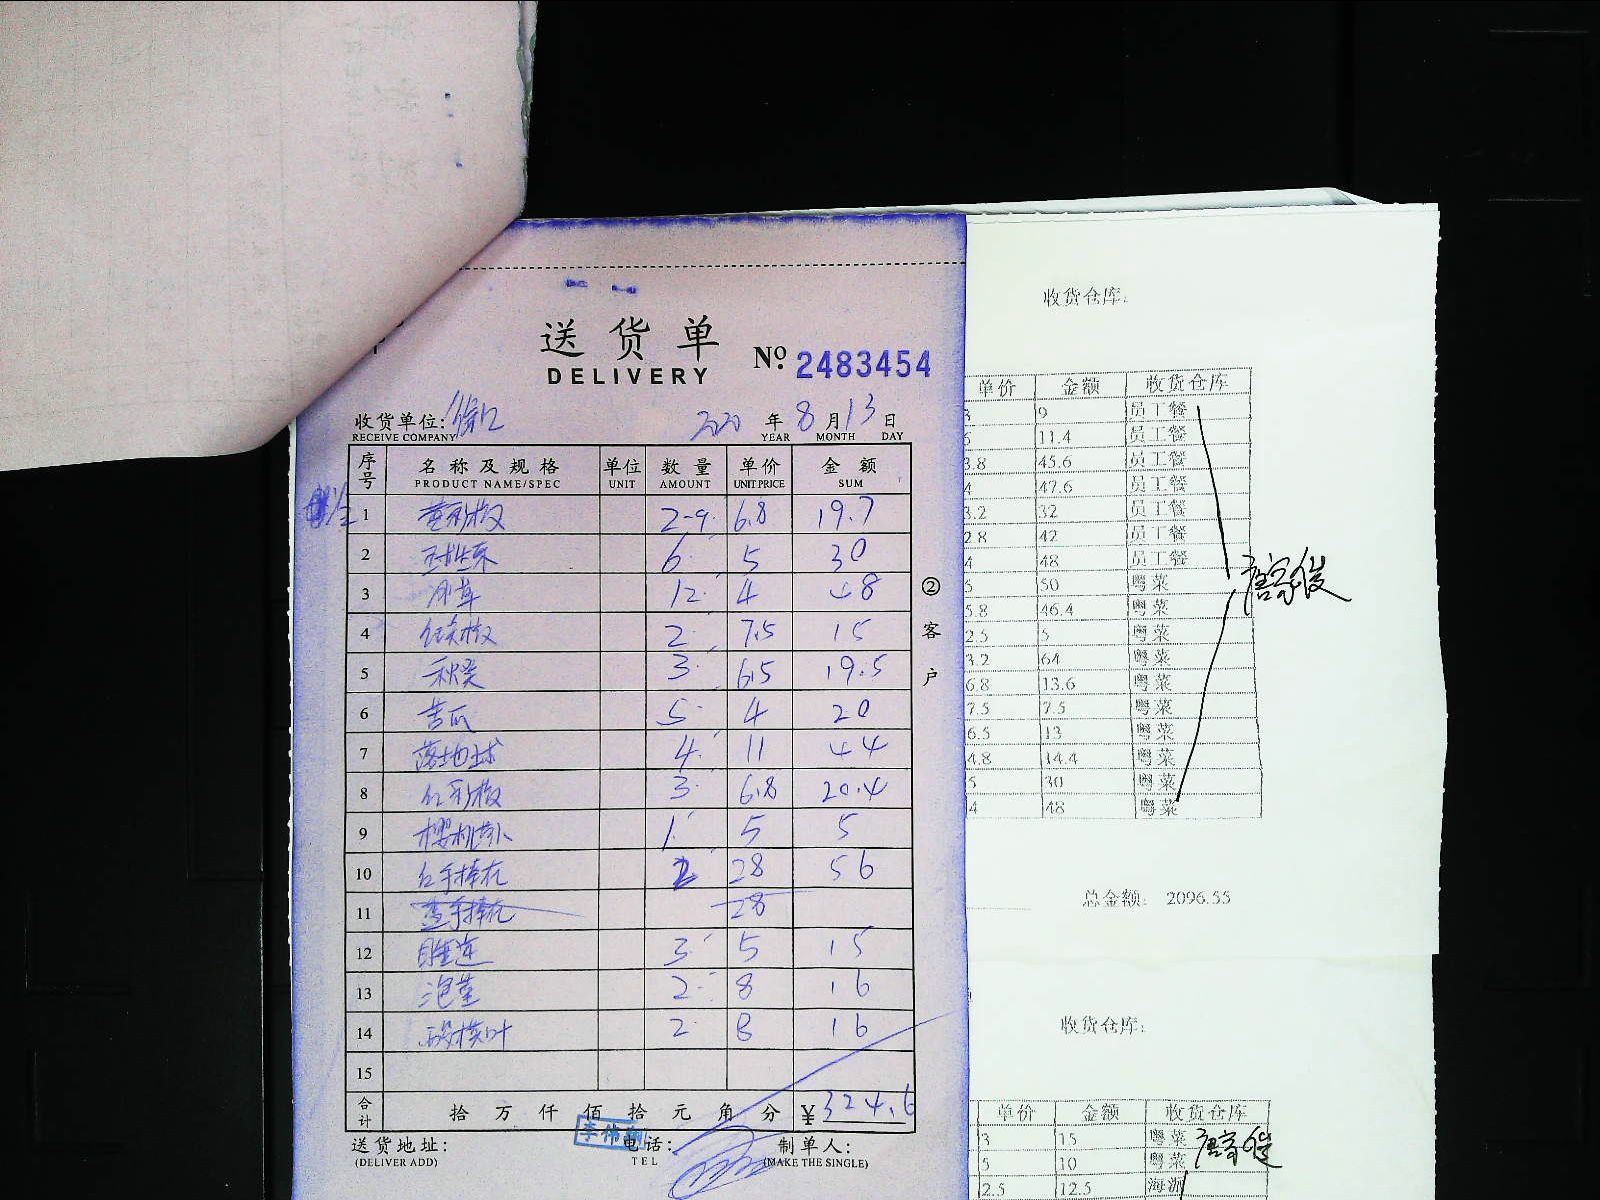 送货单
DELIVERY
No. 2483454
收货单位:
RECEIVE COMPANY
2020 年 8 月 13 日
YEAR MONTH DAY
序号 名称及规格 单位 数量 单价 金额
PRODUCT NAME/SPEC UNIT AMOUNT UNIT PRICE SUM
1 黄彩椒 2-9 6.8 19.7
2 6 5 30
3 12 4 48
4 2 7.5 15
5 秋葵 3 6.5 19.5
6 苦瓜 5 4 20
7 4 11 44
8 红彩椒 3 6.8 20.4
9 樱桃萝卜 1 5 5
10 2 28 56
11 28
12 睡莲 3 5 15
13 2 8 16
14 2 8 16
15
合计 拾 万 仟 佰 拾 元 角 分 ¥324.6
送货地址: 电话: 制单人:
(DELIVER ADD) TEL (MAKE THE SINGLE)
李伟
②客户
收货仓库:
单价 金额 收货仓库
9 员工餐
11.4 员工餐
3.8 45.6 员工餐
4 47.6 员工餐
3.2 32 员工餐
2.8 42 员工餐
4 48 员工餐
5 50 粤菜
5.8 46.4 粤菜
2.5 5 粤菜
3.2 64 粤菜
6.8 13.6 粤菜
7.5 7.5 粤菜
6.5 13 粤菜
4.8 14.4 粤菜
5 30 粤菜
4 48 粤菜
总金额: 2096.55
收货仓库:
单价 金额 收货仓库
3 15 粤菜
5 10 粤菜
2.5 12.5 海派